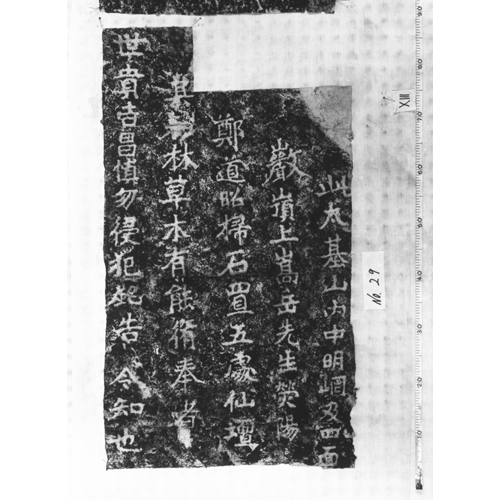 此大基山內中明崗及四面
巖嶺上嵩岳先生熒陽
鄭道昭掃石置五處仙壇
其松林草木有能脩奉者
世貴吉昌慎勿侵犯鉊告令知也
No. 29
XIII